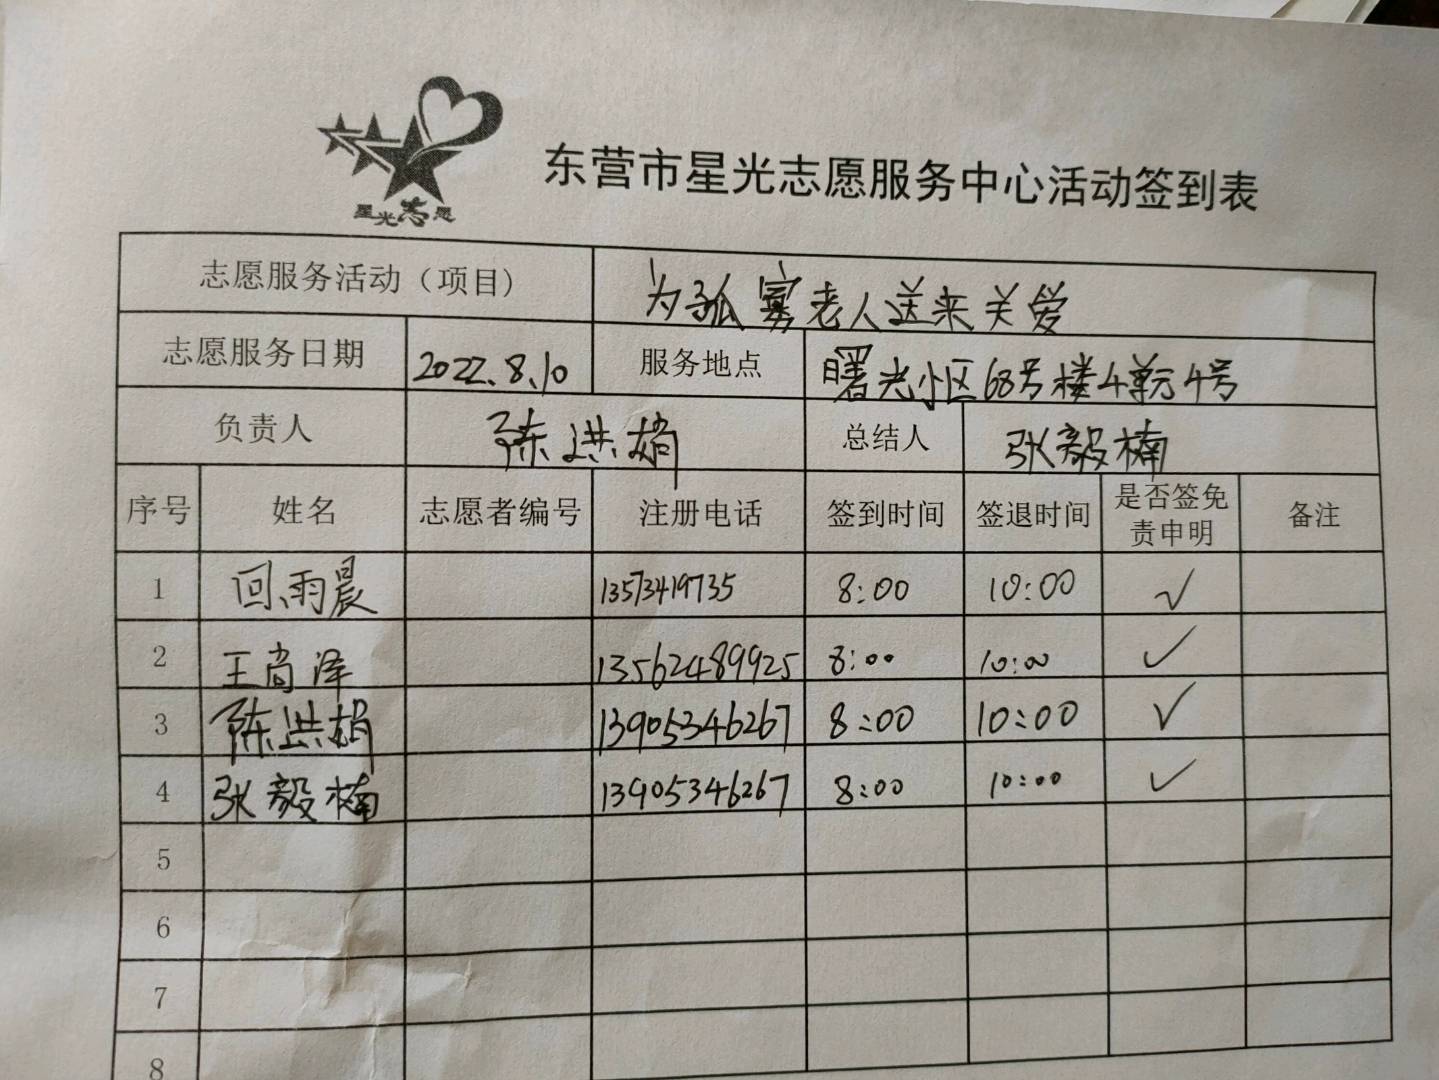 星光志愿
东营市星光志愿服务中心活动签到表
志愿服务活动（项目） 为孤寡老人送来关爱
志愿服务日期 2022.8.10 服务地点 曙光小区68号楼4单元4号
负责人 陈洪娟 总结人 张毅楠
序号 姓名 志愿者编号 注册电话 签到时间 签退时间 是否签免责申明 备注
1 回雨晨 13573419735 8:00 10:00 ✓
2 王尚泽 13562489925 8:00 10:00 ✓
3 陈洪娟 13905346267 8:00 10:00 ✓
4 张毅楠 13905346267 8:00 10:00 ✓
5
6
7
8